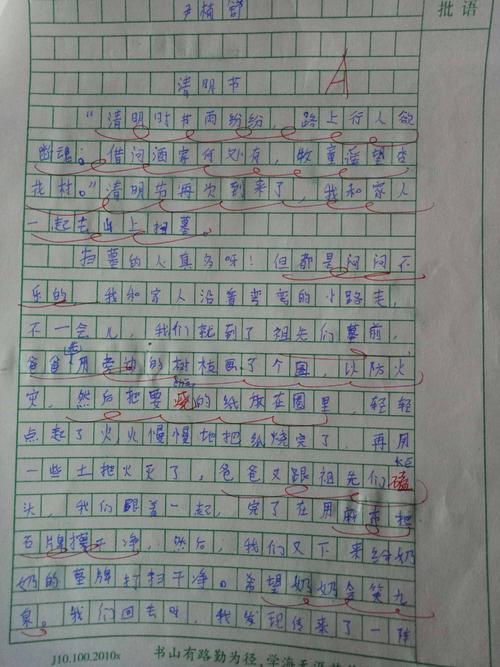 批语
A
清明节
“清明时节雨纷纷，路上行人欲
断魂。借问酒家何处有，牧童遥望杏
花村。”清明节再次到来了，我和家人
一起去山上扫墓。
扫墓的人真多呀！但都是闷闷不
乐的，我和家人沿着弯弯的小路走，
不一会儿，我们就到了祖先们墓前，
爸爸用旁边的树枝画了个圈，以防火
灾，然后把要烧的纸放在圈里，轻轻
点起了火，火慢慢地把纸烧完了，再用
一些土把火灭了，爸爸又跟祖先们磕
kē
头，我们跟着一起，完了在用把
石牌擦干净，然后，我们又下来给奶
奶的墓牌打扫干净。希望奶奶含笑九
泉。我们回去时，我发现传来了一阵
J10.100.2010x
书山有路勤为径，学海无涯